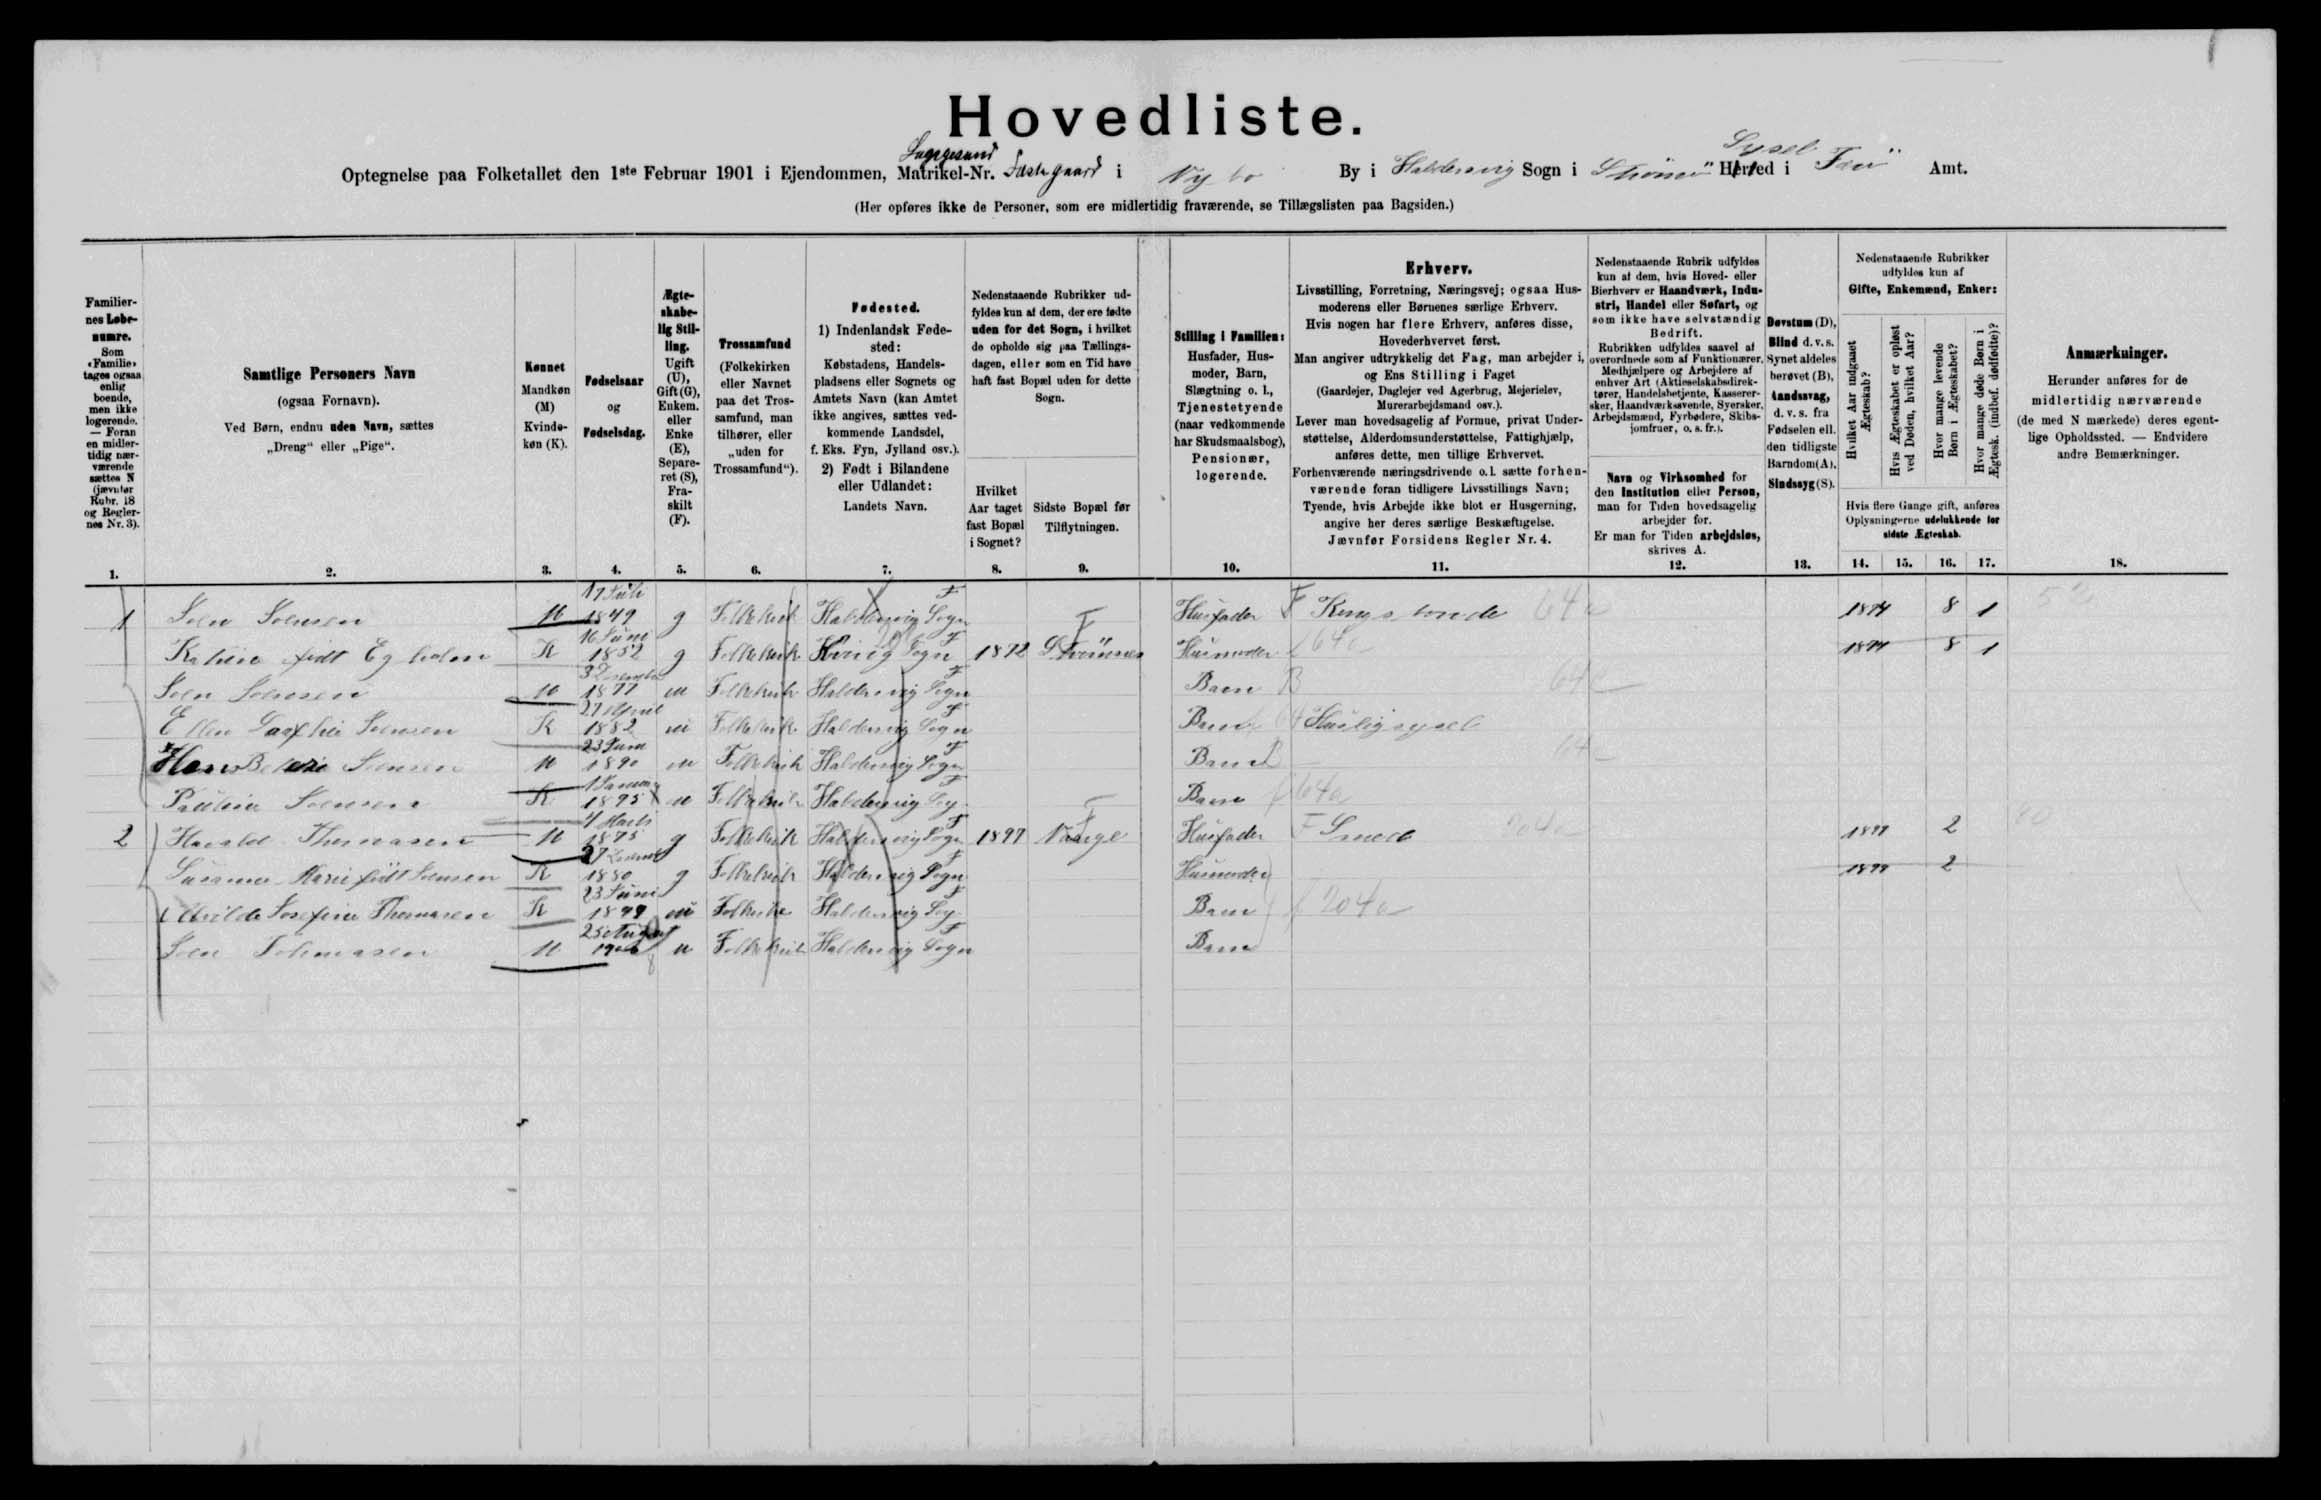 Hovedliste.
Optegnelse paa Folketallet den 1ste Februar 1901 i Ejendommen, Matrikel-Nr. i Nybo By i Haldersvig Sogn i Strömö Herred Sysel i Amt.
(Her opføres ikke de Personer, som ere midlertidig fraværende, se Tillægslisten paa Bagsiden.)
Familiernes Løbenumre. Som «Familie» tages ogsaa enlig boende, men ikke logerende. — Foran en midlertidig nærværende sættes N (jævnfør Rubr. 18 og Reglernes Nr. 3).
Samtlige Personers Navn
(ogsaa Fornavn).
Ved Børn, endnu uden Navn, sættes
„Dreng“ eller „Pige“.
Kønnet
Mandkøn (M)
Kvindekøn (K).
Fødselsaar
og
Fødselsdag.
Ægteskabelig Stilling.
Ugift (U), Gift (G), Enkem. eller Enke (E), Separeret (S), Fraskilt (F).
Trossamfund
(Folkekirken eller Navnet paa det Trossamfund, man tilhører, eller „uden for Trossamfund“).
Fødested.
1) Indenlandsk Fødested:
Købstadens, Handelspladsens eller Sognets og Amtets Navn (kan Amtet ikke angives, sættes vedkommende Landsdel, f. Eks. Fyn, Jylland osv.).
2) Født i Bilandene eller Udlandet:
Landets Navn.
Nedenstaaende Rubrikker udfyldes kun af dem, der ere fødte uden for det Sogn, i hvilket de opholde sig paa Tællingsdagen, eller som en Tid have haft fast Bopæl uden for dette Sogn.
Hvilket Aar taget fast Bopæl i Sognet?
Sidste Bopæl før Tilflytningen.
Stilling i Familien:
Husfader, Husmoder, Barn, Slægtning o. l., Tjenestetyende (naar vedkommende har Skudsmaalsbog), Pensionær, logerende.
Erhverv.
Livsstilling, Forretning, Næringsvej; ogsaa Husmoderens eller Børnenes særlige Erhverv.
Hvis nogen har flere Erhverv, anføres disse, Hovederhvervet først.
Man angiver udtrykkelig det Fag, man arbejder i, og Ens Stilling i Faget
(Gaardejer, Daglejer ved Agerbrug, Mejerielev, Murerarbejdsmand osv.).
Lever man hovedsagelig af Formue, privat Understøttelse, Alderdomsunderstøttelse, Fattighjælp, anføres dette, men tillige Erhvervet.
Forhenværende næringsdrivende o. l. sætte forhenværende foran tidligere Livsstillings Navn;
Tyende, hvis Arbejde ikke blot er Husgerning, angive her deres særlige Beskæftigelse.
Jævnfør Forsidens Regler Nr. 4.
Nedenstaaende Rubrik udfyldes kun af dem, hvis Hoved- eller Bierhverv er Haandværk, Industri, Handel eller Søfart, og som ikke have selvstændig Bedrift.
Rubrikken udfyldes saavel af overordnede som af Funktionærer, Medhjælpere og Arbejdere af enhver Art (Aktieselskabsdirektører, Handelsbetjente, Kasserersker, Haandværkssvende, Syersker, Arbejdsmænd, Fyrbødere, Skibsjomfruer, o. s. fr.).
Navn og Virksomhed for den Institution eller Person, man for Tiden hovedsagelig arbejder for.
Er man for Tiden arbejdsløs, skrives A.
Døvstum (D), Blind d. v. s. Synet aldeles berøvet (B), Aandssvag, d. v. s. fra Fødselen ell. den tidligste Barndom (A), Sindssyg (S).
Nedenstaaende Rubrikker udfyldes kun af
Gifte, Enkemænd, Enker:
Hvilket Aar indgaaet Ægteskab?
Hvis Ægteskabet er opløst ved Døden, hvilket Aar?
Hvor mange levende Børn i Ægteskabet?
Hvor mange døde Børn i Ægtesk. (indbef. dødfødte)?
Hvis flere Gange gift, anføres Oplysningerne udelukkende for sidste Ægteskab.
Anmærkninger.
Herunder anføres for de midlertidig nærværende (de med N mærkede) deres egentlige Opholdssted. — Endvidere andre Bemærkninger.
1. 2. 3. 4. 5. 6. 7. 8. 9. 10. 11. 12. 13. 14. 15. 16. 17. 18.
1 Joen Joensen M 17 Juli 1849 g Folkekirk Haldersvig Sogn Husfader F Kongsbonde 64a 1874 8 1
født Egholm K 16 Juni 1852 g Folkekirk Sogn 1872 Strömnes Husmoder 64a 1874 8 1
Joen Joensen M 3 December 1877 u Folkekirk Haldersvig Sogn Barn B
Ellen Joensen K 27 April 1882 u Folkekirk Haldersvig Sogn Barn Huuslig sysel
Hans Joensen M 23 Juni 1890 u Folkekirk Haldersvig Sogn Barn
Joensen K 1 Januar 1895 u Folkekirk Haldersvig Sog Barn 64a
2 Harald Thomasen M 4 Marts 1875 g Folkekirk Haldersvig Sogn 1897 Husfader F Smed 1899 2
Susanne Marie født Joensen K 1880 g Folkekirk Haldersvig Sogn Husmoder 1899 2
Josefine Thomasen K 23 Juni 1899 u Folkekirke Haldersvig Sog Barn 204a
Joen Thomasen M 25 August u Folkekirk Haldersvig Sogn Barn